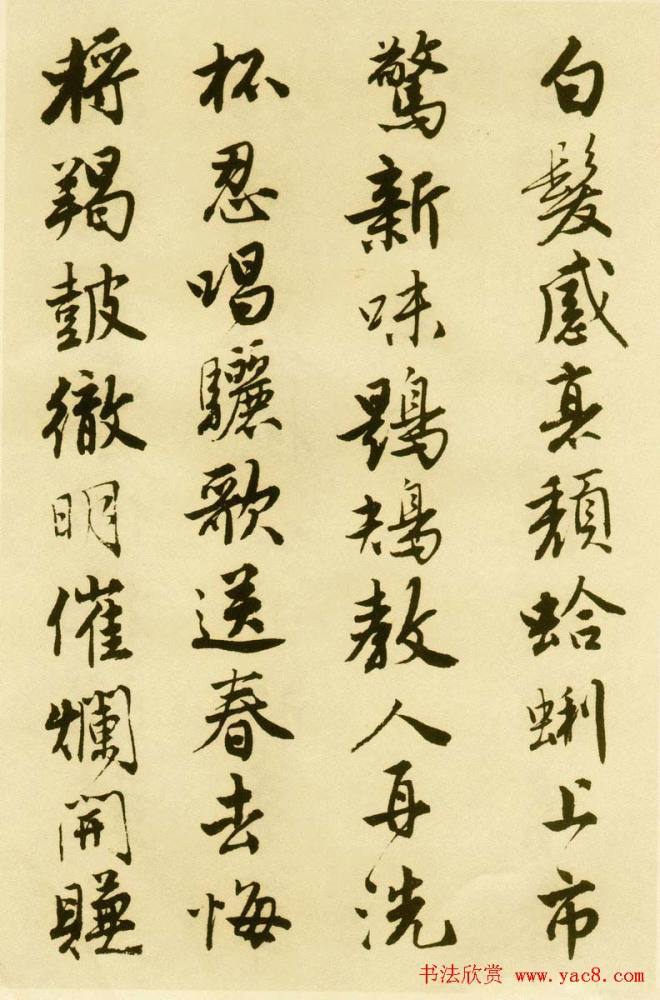 白髮感衰頹蛤蜊上市
驚新味鶗鴂教人再洗
杯忍唱驪歌送春去悔
將羯皷徹明催爛開賺
书法欣赏 www.yac8.com